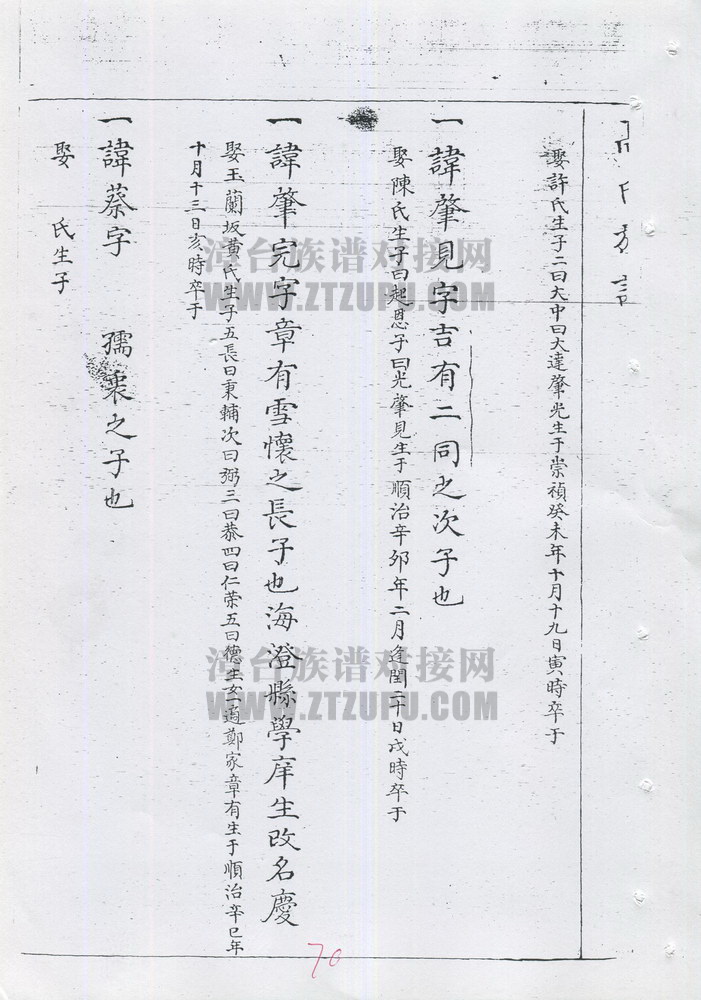 氏
娶許氏生子二曰大中曰大達肇光生于崇禎癸未年十月十九日寅時卒于
一諱肇見字吉有二同之次子也
娶陳氏生子曰起恩子曰光肇見生于順治辛卯年二月逢閏二十日戌時卒于
一諱肇完字章有雪懷之長子也海澄縣學庠生改名慶
娶玉蘭坂黃氏生子五長曰秉輔次曰弼三曰恭四曰仁荣五曰德生女一適鄭家章有生于順治辛巳年
十月十三日亥時卒于
一諱蔡字 孺衷之子也
娶 氏生子
漳台族谱对接网
WWW.ZTZUPU.COM
漳台族谱对接网
WWW.ZTZUPU.COM
70